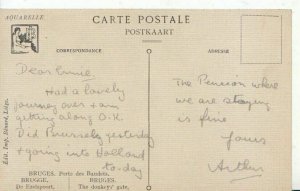 AQUARELLE
CARTE POSTALE
POSTKAART
CORRESPONDANCE
ADRESSE
Dear Ernie
Had a lovely
journey over + am
getting along O.K.
Did Brussels yesterday
+ going into Holland
to-day
The Pension where
we are staying
is fine
Yours
Arthur
BRUGES. Porte des Baudets.
BRUGGE.
De Ezelspoort.
BRUGES.
The donkeys' gate.
Edit. Imp. Bénard, Liége.